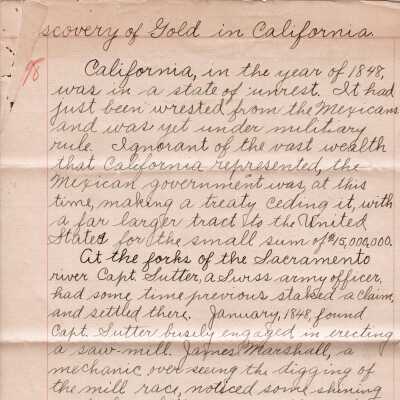 scovery of Gold in California.
98
California, in the year of 1848,
was in a state of unrest. It had
just been wrested from the Mexicans
and was yet under military
rule. Ignorant of the vast wealth
that California represented, the
Mexican government was, at this
time, making a treaty ceding it, with
a far larger tract to the United
States for the small sum of $15,000,000.
At the forks of the Sacramento
river Capt. Sutter, a Swiss army officer,
had some time previous staked a claim,
and settled there. January, 1848, found
Capt. Sutter busily engaged in erecting
a saw-mill. James Marshall, a
mechanic over seeing the digging of
the mill race, noticed some shining